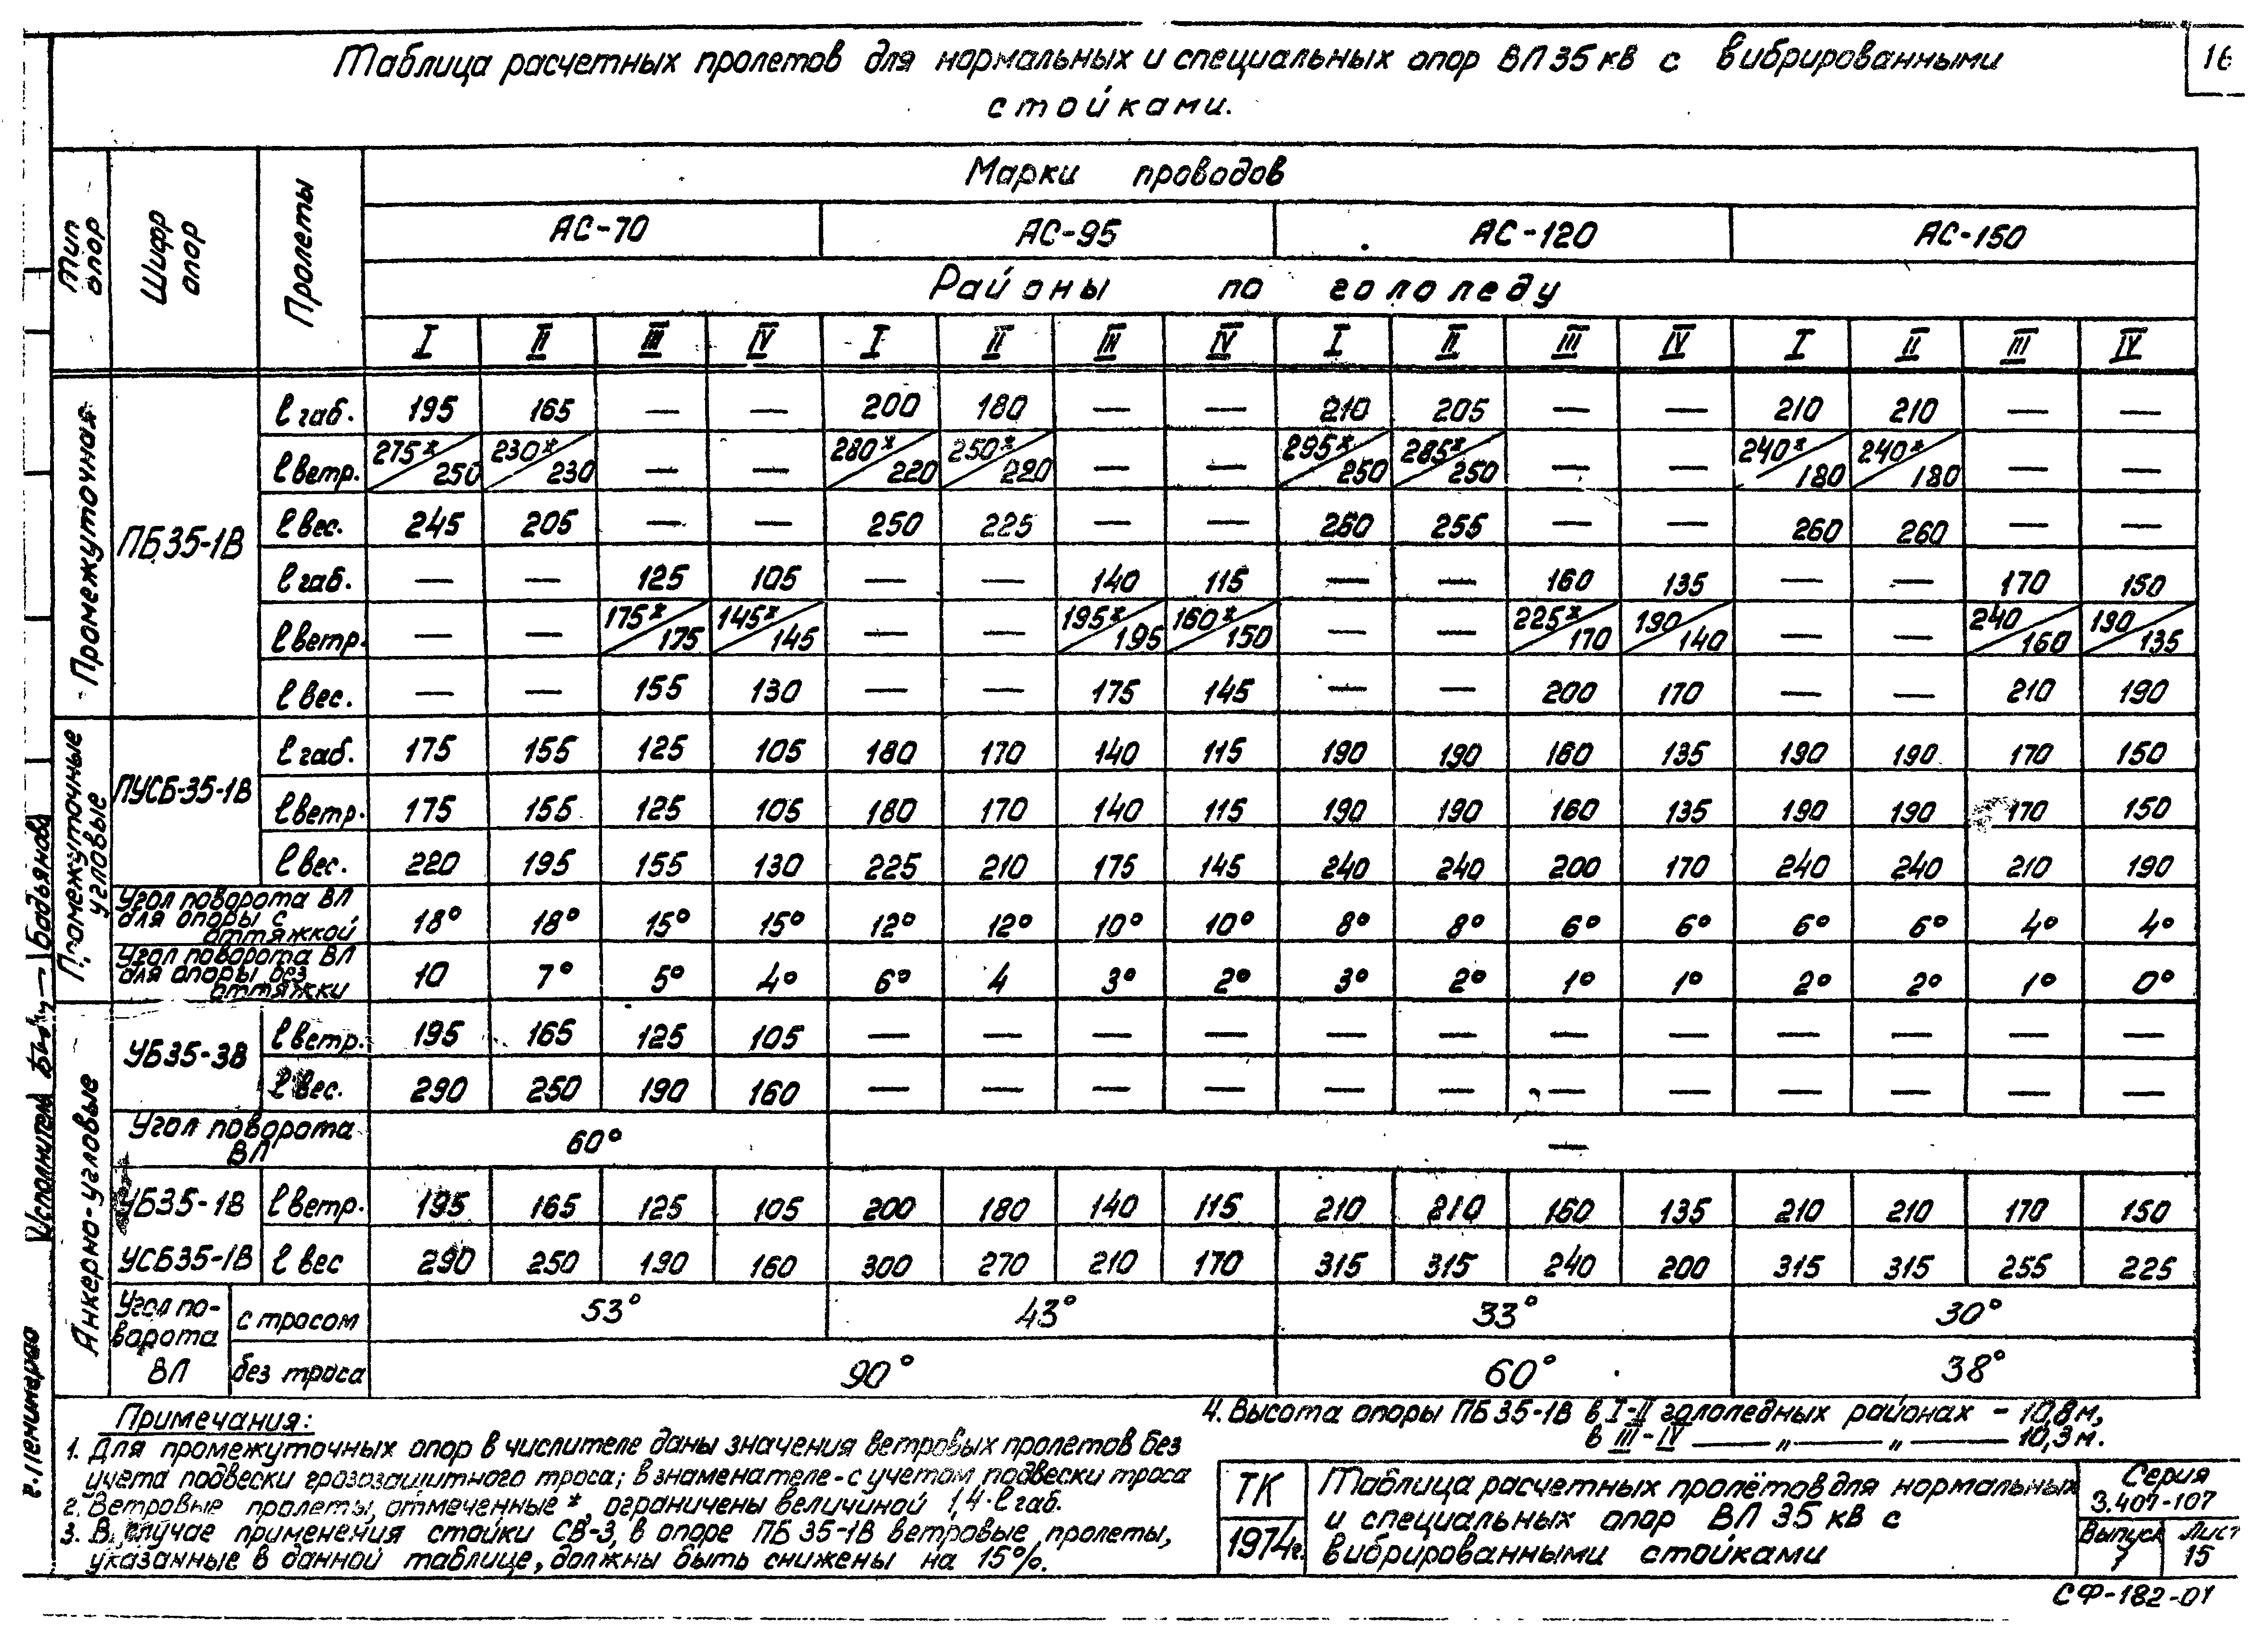 Таблица расчетных пролетов для нормальных и специальных опор ВЛ 35 кв с вибрированными
стойками.
16
Тип опор
Шифр опор
Пролеты
Марки проводов
АС-70 АС-95 АС-120 АС-150
Районы по гололеду
I II III IV I II III IV I II III IV I II III IV
Промежуточная
ПБ35-1В
ℓ габ. 195 165 — — 200 180 — — 210 205 — — 210 210 — —
ℓ ветр. 275*/250 230*/230 — — 280*/220 250*/220 — — 295*/250 285*/250 — — 240*/180 240*/180 — —
ℓ вес. 245 205 — — 250 225 — — 260 255 — — 260 260 — —
ℓ габ. — — 125 105 — — 140 115 — — 160 135 — — 170 150
ℓ ветр. — — 175*/175 145*/145 — — 195*/195 160*/150 — — 225*/170 190/140 — — 240/160 190/135
ℓ вес. — — 155 130 — — 175 145 — — 200 170 — — 210 190
Промежуточные угловые
ПУСБ-35-1В
ℓ габ. 175 155 125 105 180 170 140 115 190 190 160 135 190 190 170 150
ℓ ветр. 175 155 125 105 180 170 140 115 190 190 160 135 190 190 170 150
ℓ вес. 220 195 155 130 225 210 175 145 240 240 200 170 240 240 210 190
Угол поворота ВЛ
для опоры с
оттяжкой
18° 18° 15° 15° 12° 12° 10° 10° 8° 8° 6° 6° 6° 6° 4° 4°
Угол поворота ВЛ
для опоры без
оттяжки
10 7° 5° 4° 6° 4 3° 2° 3° 2° 1° 1° 2° 2° 1° 0°
Анкерно-угловые
УБ35-3В
ℓ ветр. 195 165 125 105 — — — — — — — — — — — —
ℓ вес. 290 250 190 160 — — — — — — — — — — — —
Угол поворота
ВЛ
60° —
УБ35-1В ℓ ветр. 195 165 125 105 200 180 140 115 210 210 160 135 210 210 170 150
УСБ35-1В ℓ вес 290 250 190 160 300 270 210 170 315 315 240 200 315 315 255 225
Угол по-
ворота
ВЛ
с тросом 53° 43° 33° 30°
без троса 90° 60° 38°
Примечания:
1. Для промежуточных опор в числителе даны значения ветровых пролетов без
учета подвески грозозащитного троса; в знаменателе - с учетом подвески троса
2. Ветровые пролеты, отмеченные *, ограничены величиной 1,4·ℓ габ.
3. В случае применения стойки СВ-3, в опоре ПБ 35-1В ветровые пролеты,
указанные в данной таблице, должны быть снижены на 15%.
4. Высота опоры ПБ 35-1В в I-II гололедных районах - 10,8 м,
в III-IV —„—„— 10,3 м.
ТК
1974г.
Таблица расчетных пролётов для нормальных
и специальных опор ВЛ 35 кВ с
вибрированными стойками
Серия
3.407-107
Выпуск
7
Лист
15
СФ-182-01
Исполнитель
Бадьянова
г. Ленинград